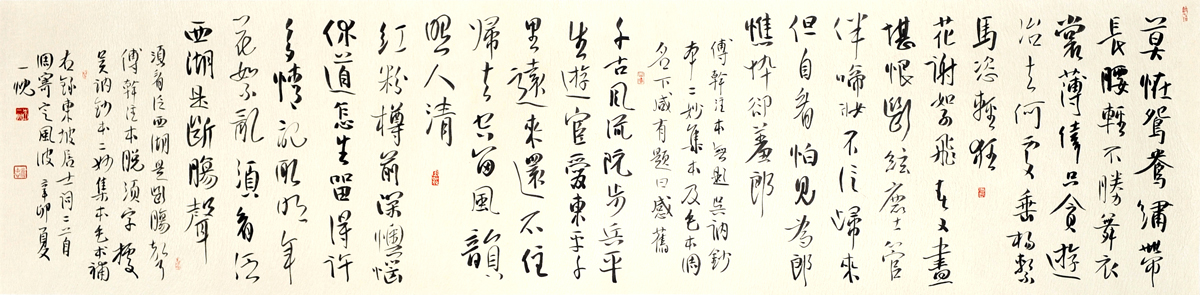 莫怪鴛鴦繡帶
長腰輕不勝舞衣
裳薄倖只貪遊
冶去何處垂楊繫
馬恣輕狂
花謝絮飛春又盡
堪恨斷絃塵管
伴啼妝不信歸來
但自看怕見為郎
憔悴卻羞郎
傅幹注本無題吳訥鈔
本二妙集本及毛本調
名下咸有題曰感舊
千古風流阮步兵平
生遊宦愛東平千
里遠來還不住
歸去空留風韻
照人清
紅粉樽前深懊惱
休道怎生留得許
多情記取明年
花絮亂須看泛
西湖是斷腸聲
須看泛西湖是斷腸聲
傅幹注本脫須字據
吳訥鈔本二妙集本毛本補
右錄東坡居士詞二首
調寄定風波辛卯夏